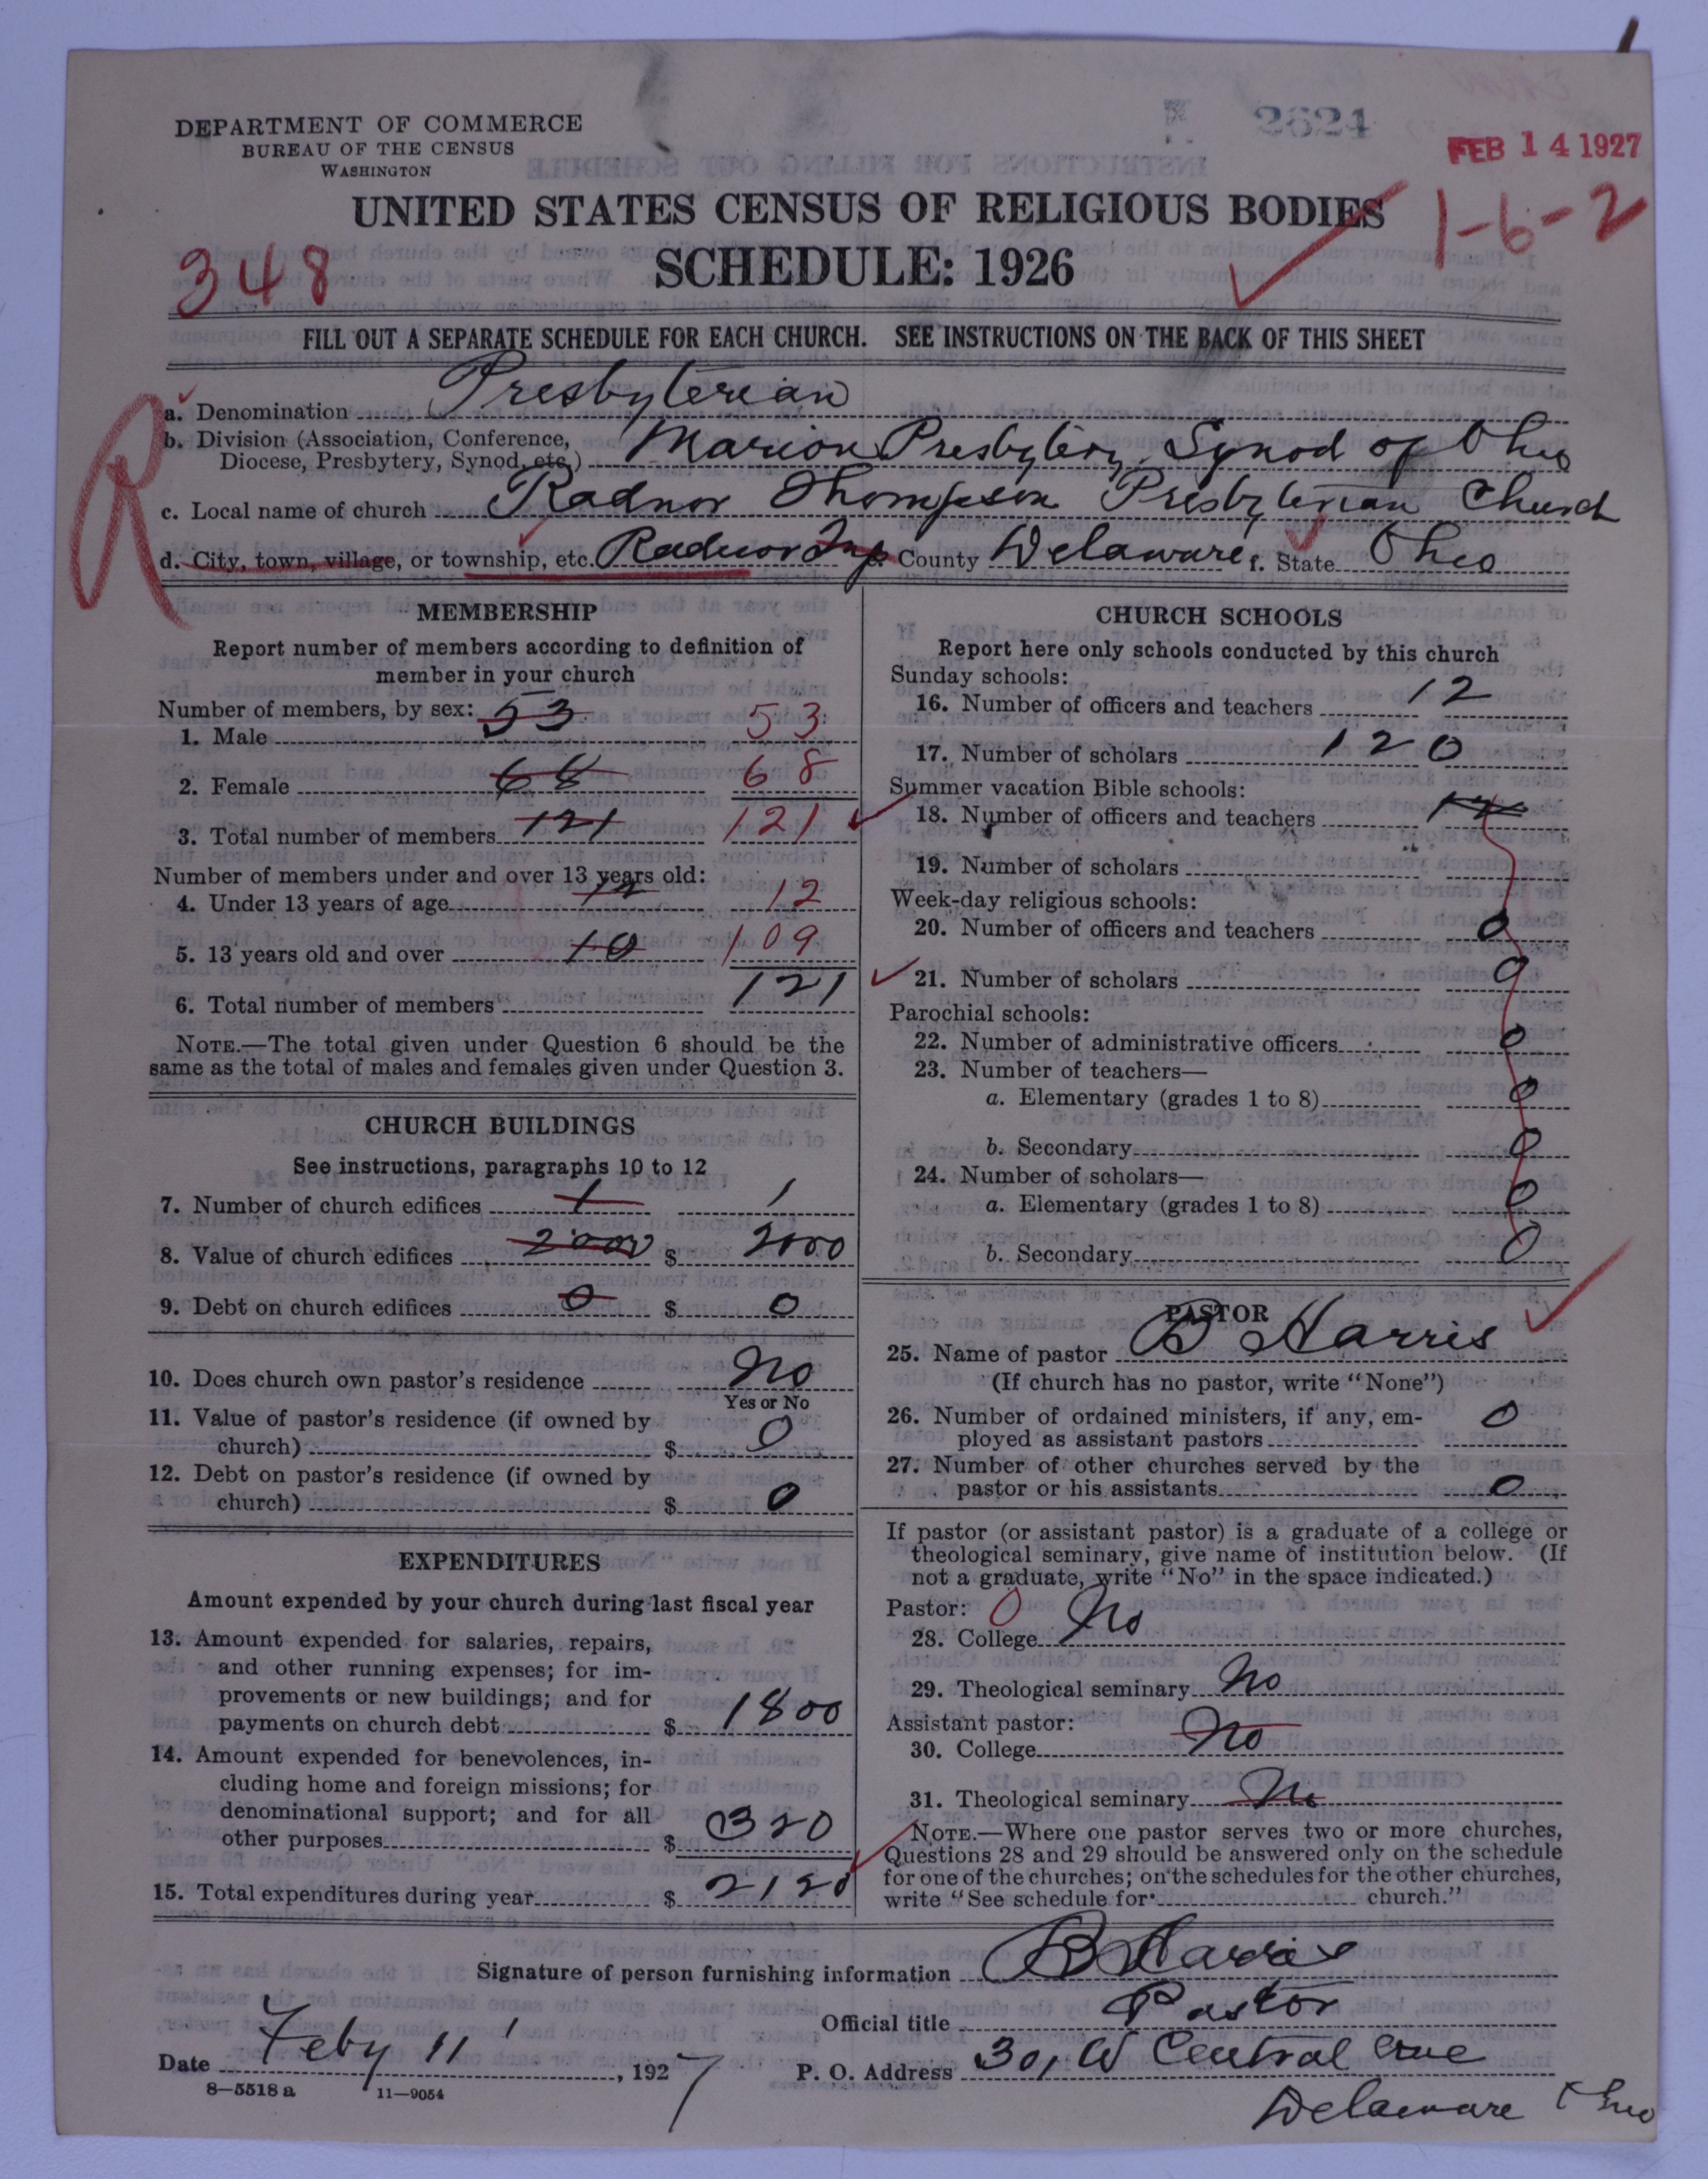 DEPARTMENT OF COMMERCE
BUREAU OF THE CENSUS
WASHINGTON
2624
FEB 14 1927
UNITED STATES CENSUS OF RELIGIOUS BODIES
1-6-2
348
SCHEDULE: 1926
FILL OUT A SEPARATE SCHEDULE FOR EACH CHURCH. SEE INSTRUCTIONS ON THE BACK OF THIS SHEET
R
a. Denomination Presbyterian
b. Division (Association, Conference,
Diocese, Presbytery, Synod, etc.) Marion Presbytery, Synod of Ohio
c. Local name of church Radnor Thompson Presbyterian Church
d. City, town, village, or township, etc. Radnor Twp e. County Delaware f. State Ohio
MEMBERSHIP
Report number of members according to definition of
member in your church
Number of members, by sex: 53
1. Male 53
2. Female 68 68
3. Total number of members 121 121
Number of members under and over 13 years old:
4. Under 13 years of age 12 12
5. 13 years old and over 10 109
6. Total number of members 121
NOTE.—The total given under Question 6 should be the
same as the total of males and females given under Question 3.
CHURCH BUILDINGS
See instructions, paragraphs 10 to 12
7. Number of church edifices 1 1
8. Value of church edifices 2000 $ 2000
9. Debt on church edifices 0 $ 0
10. Does church own pastor's residence No
Yes or No
11. Value of pastor's residence (if owned by
church) $ 0
12. Debt on pastor's residence (if owned by
church) $ 0
EXPENDITURES
Amount expended by your church during last fiscal year
13. Amount expended for salaries, repairs,
and other running expenses; for im-
provements or new buildings; and for
payments on church debt $ 1800
14. Amount expended for benevolences, in-
cluding home and foreign missions; for
denominational support; and for all
other purposes $ 320
15. Total expenditures during year $ 2120
CHURCH SCHOOLS
Report here only schools conducted by this church
Sunday schools:
16. Number of officers and teachers 12
17. Number of scholars 120
Summer vacation Bible schools:
18. Number of officers and teachers
19. Number of scholars
Week-day religious schools:
20. Number of officers and teachers 0
21. Number of scholars 0
Parochial schools:
22. Number of administrative officers 0
23. Number of teachers—
a. Elementary (grades 1 to 8) 0
b. Secondary 0
24. Number of scholars—
a. Elementary (grades 1 to 8) 0
b. Secondary 0
PASTOR
25. Name of pastor B Harris
(If church has no pastor, write "None")
26. Number of ordained ministers, if any, em-
ployed as assistant pastors 0
27. Number of other churches served by the
pastor or his assistants 0
If pastor (or assistant pastor) is a graduate of a college or
theological seminary, give name of institution below. (If
not a graduate, write "No" in the space indicated.)
Pastor: 0
28. College No
29. Theological seminary No
Assistant pastor:
30. College No
31. Theological seminary No
NOTE.—Where one pastor serves two or more churches,
Questions 28 and 29 should be answered only on the schedule
for one of the churches; on the schedules for the other churches,
write "See schedule for church."
Signature of person furnishing information B Harris
Official title Pastor
Date Feby 11, 1927 P. O. Address 301 W Central Ave
8-5518 a 11-9054
Delaware Ohio